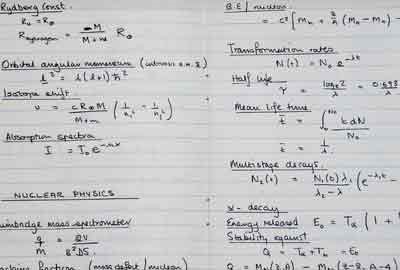 Rydberg Const.
R∞ = R∞
R_Hydrogen = M / (M + m) R∞
Orbital angular momentum
l² = l(l+1)ħ²
Isotope shift.
ν = cR∞M / (M + m) (1/n₁² − 1/n₂²)
Absorption spectra
I = I₀e^(−nαx)
NUCLEAR PHYSICS
mass spectrometer
q/M = 2V / B²D
fraction (mass defect / nucleon)
B.E / nucleon
= c² [Mn + Z/A (MH − Mn) −
Transformation rates.
N(t) = N₀ e^(−λt)
Half life
τ = logₑ2 / λ = 0.693
Mean life time
t̄ = ∫ t dN / N₀
t̄ = 1/λ
Multistage decays.
N₂(t) = N₁(0) λ₁ / (λ₂ − λ₁) (e^(−λ₁t −
α - decay
Energy released E₀ = Tα (1 +
Stability against
Q = Tα + Tb = E₀
Q = M(Z, A) − M(Z−2, A−4)